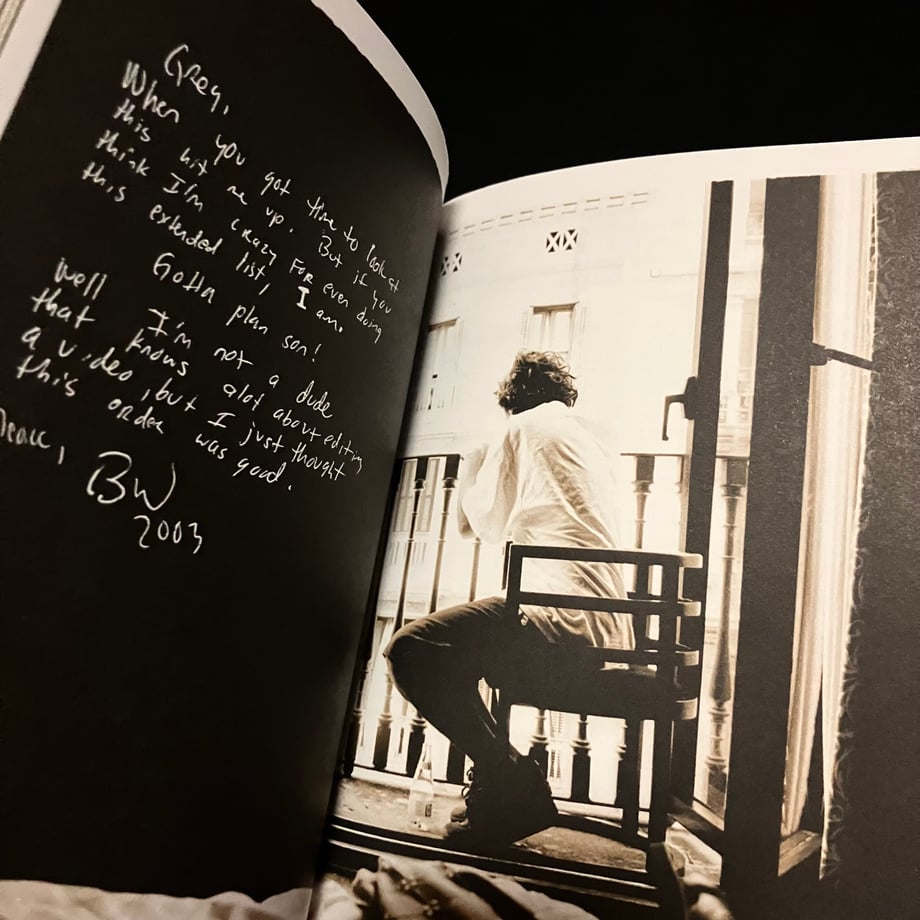 Greg,
When you got time to look at
this hit me up. But if you
think I'm crazy for even doing
this extended list, I am.
Gotta plan son!
Well I'm not a dude
that knows alot about editing
a video, but I just thought
this order was good.
Peace,
BW
2003